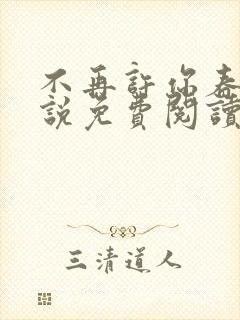 不再許你春
說免費閱讀
三清道人